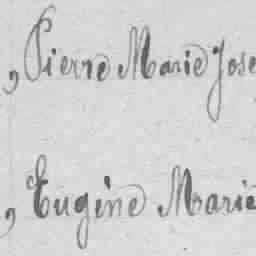 , Pierre Marie Jose
, Eugène Marie